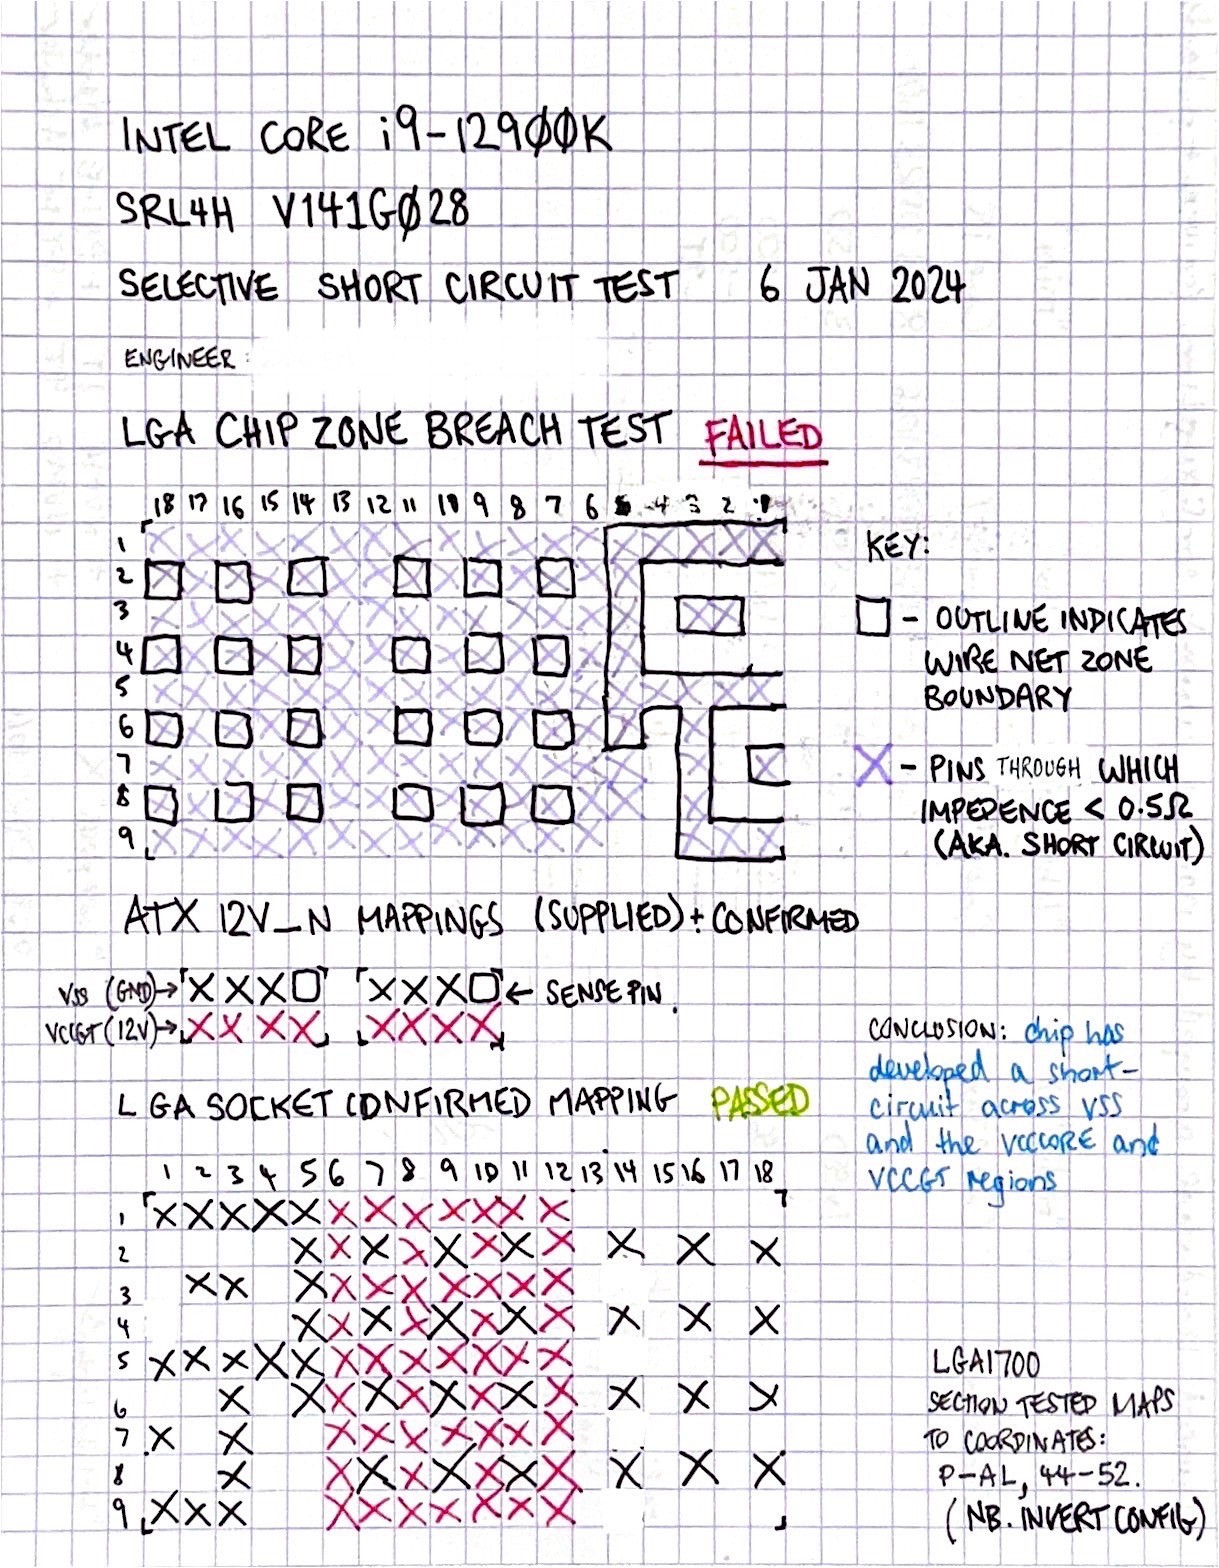 INTEL CORE i9-129ØØK
SRL4H V141GØ28
SELECTIVE SHORT CIRCUIT TEST 6 JAN 2024
ENGINEER:
LGA CHIP ZONE BREACH TEST FAILED
18 17 16 15 14 13 12 11 10 9 8 7 6 5 4 3 2 1
1
2
3
4
5
6
7
8
9
KEY:
- OUTLINE INDICATES
WIRE NET ZONE
BOUNDARY
X - PINS THROUGH WHICH
IMPEDENCE < 0.5Ω
(AKA. SHORT CIRCUIT)
ATX 12V_N MAPPINGS (SUPPLIED) + CONFIRMED
VSS (GND)→ X X X X X X ← SENSE PIN.
VCCGT (12V)→ X X X X X X X X
CONCLUSION: chip has
developed a short-
circuit across VSS
and the VCCCORE and
VCCGT regions
LGA SOCKET CONFIRMED MAPPING PASSED
1 2 3 4 5 6 7 8 9 10 11 12 13 14 15 16 17 18
1 X X X X X X X X X X X X
2 X X X X X X X X X X X
3 X X X X X X X X X X
4 X X X X X X X X X X X
5 X X X X X X X X X X X X
6 X X X X X X X X X X X X
7 X X X X X X X X X
8 X X X X X X X X X X X
9 X X X X X X X X X X
LGA1700
SECTION TESTED MAPS
TO COORDINATES:
P-AL, 44-52.
(NB. INVERT CONFIG)